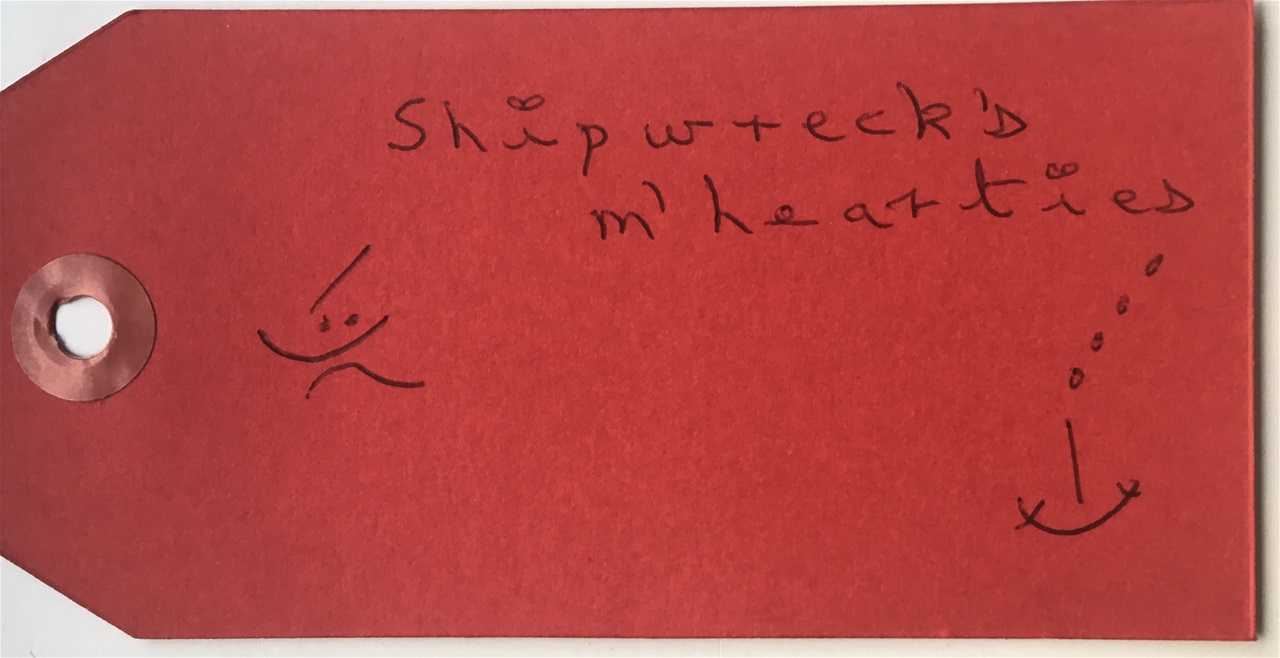 Shipwreck's
m'hearties